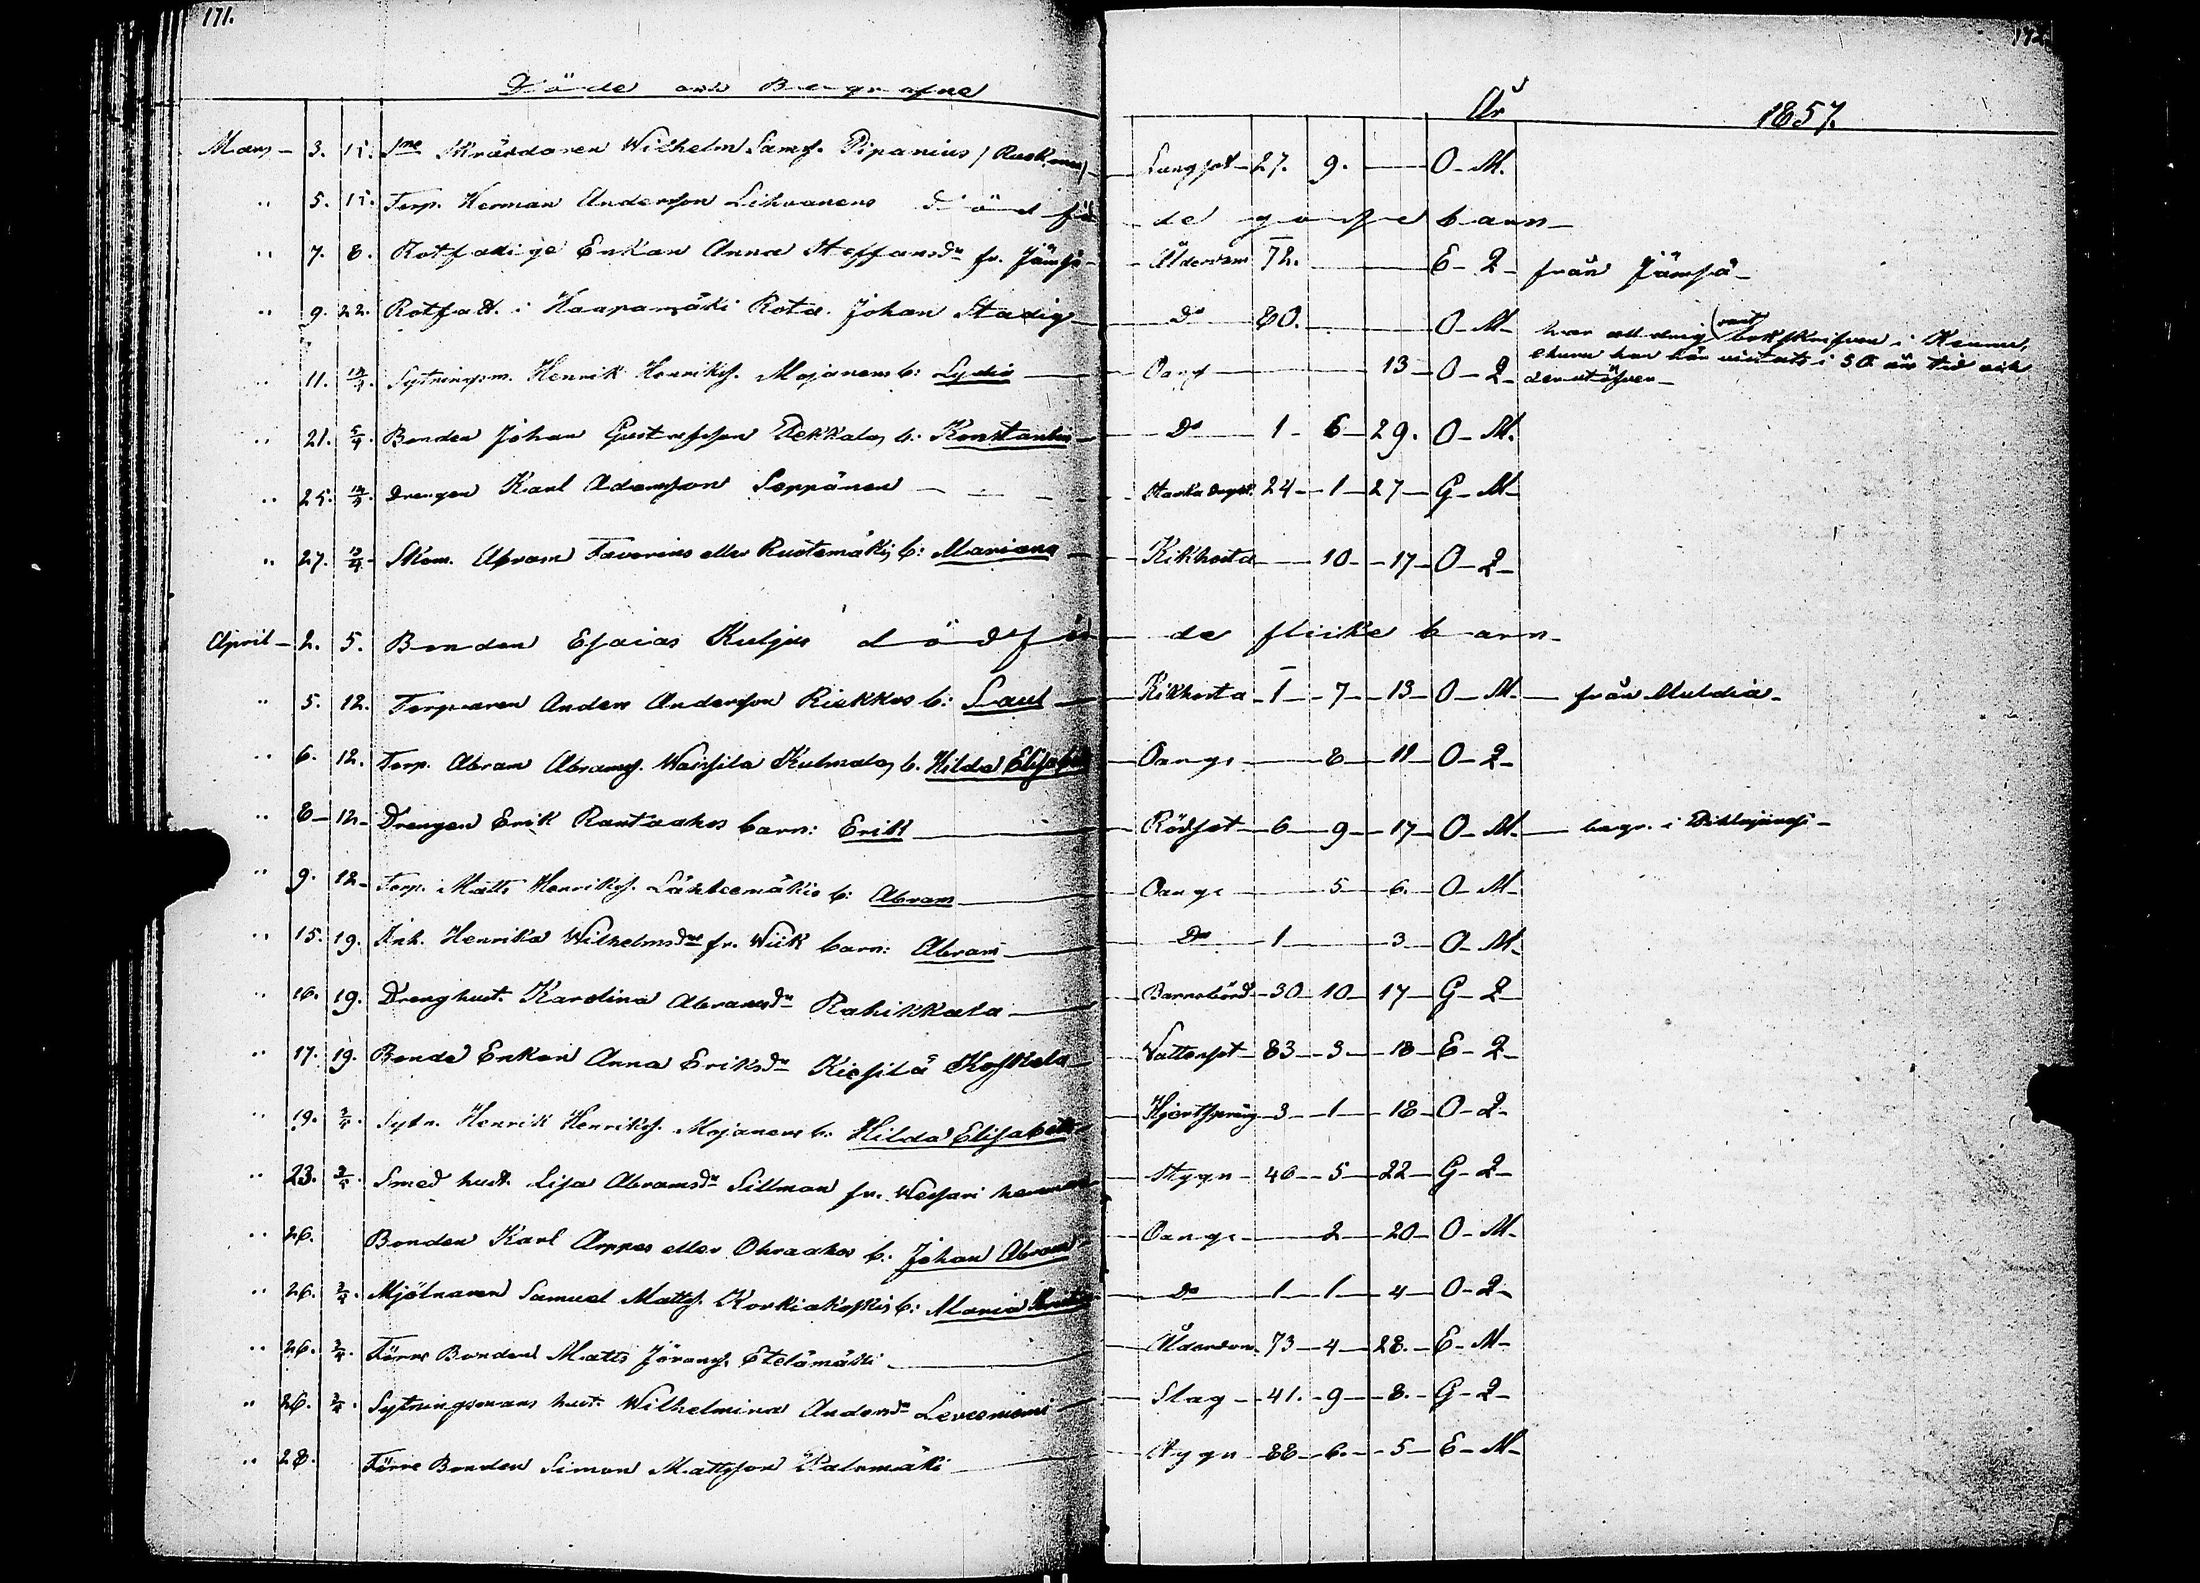 171.
172.
Döde och Begrafne
År 1857.
Mars 3. 15. Skräddaren Wilhelm Sams. Pipanius / Lungsot 27. 9. O. M.
" 5. 15. Torp. Herman Andersson Lihvanens dödfödde gosse barn
" 7. 8. Rotfattige Enkan Anna Steffansdr fr. Jämsä Ålderdom 72. E. Q. från Jämsä
" 9. 22. Rotfatt. i Haapamäki Rota Johan Stadig Do 80. O. M. har alldrig varit bokskrifven i Keuru, ehuru han här vistats i 30 års tid och derutöfver
" 11. 13/4. Sytningsm. Henrik Henriks. Mojanens b: Lydia 13 O Q
" 21. 5/4. Bonden Johan Gustafsson Pekkala, b: Konstantin Do 1 6 29. O. M.
" 25. Drengen Karl Adamsson Seppänen 24 1 27 G. M.
" 27. Abram Taverius eller Ruotsmäki, b: Mariana Kikhosta 10 17 O Q
April 2. 5. Bonden Esaias Kuljus dödfödde flicke barn
" 5. 12. Torparen Anders Andersson Riekkos b: Saul Kikhosta 1 7 13 O. M. från Multia
" 6. 12. Torp. Abram Abrams. Waissila Kulmala, b. Hilda Elisabet 8 11 O Q
" 8 12 Drengen Erik Rantaahos barn: Erik Rödsot 6 9 17 O. M. begr. i Pihlajavesi
" 9. 12 Torp. Matts Henriks. b: Abram 5 6. O. M.
" 15. 19. Inh. Henrika Wilhelmsdrs fr. Wiik barn: Abram Do 1 3 O. M.
" 16. 19. Drenghust. Karolina Abramsdr Rahikkala Barnsbörd 30 10 17 G Q
" 17. 19. Bonde Enkan Anna Eriksdr Kiesilä Koskela Vattensot 83 3 18 E. Q
" 19. 3/5. Sytn. Henrik Henriks. Mojanens b: Hilda Elisabet 3 1 18 O Q
" 23. 3/5. Smed hust. Lisa Abramsdr Sillman fr. Wessari hemman Stygn 46 5 22 G Q
" 26. Bonden Karl Arppes eller Ohraahos b: Johan Abram 2 20 O. M.
" 26. Mjölnaren Samuel Matts. Korkiakoskis b: Maria Do 1 1 4 O Q
" 26. Förre Bonden Matts Jörans. Etelämäki Ålderdom 73 4 28. E. M.
" 26. Sytningsmans hust. Wilhelmina Andersdr Leveeniemi Slag 41. 9 8. G Q
" 28. Förre Bonden Simon Mattsson Palomäki Stygn 88 6. 5 E. M.